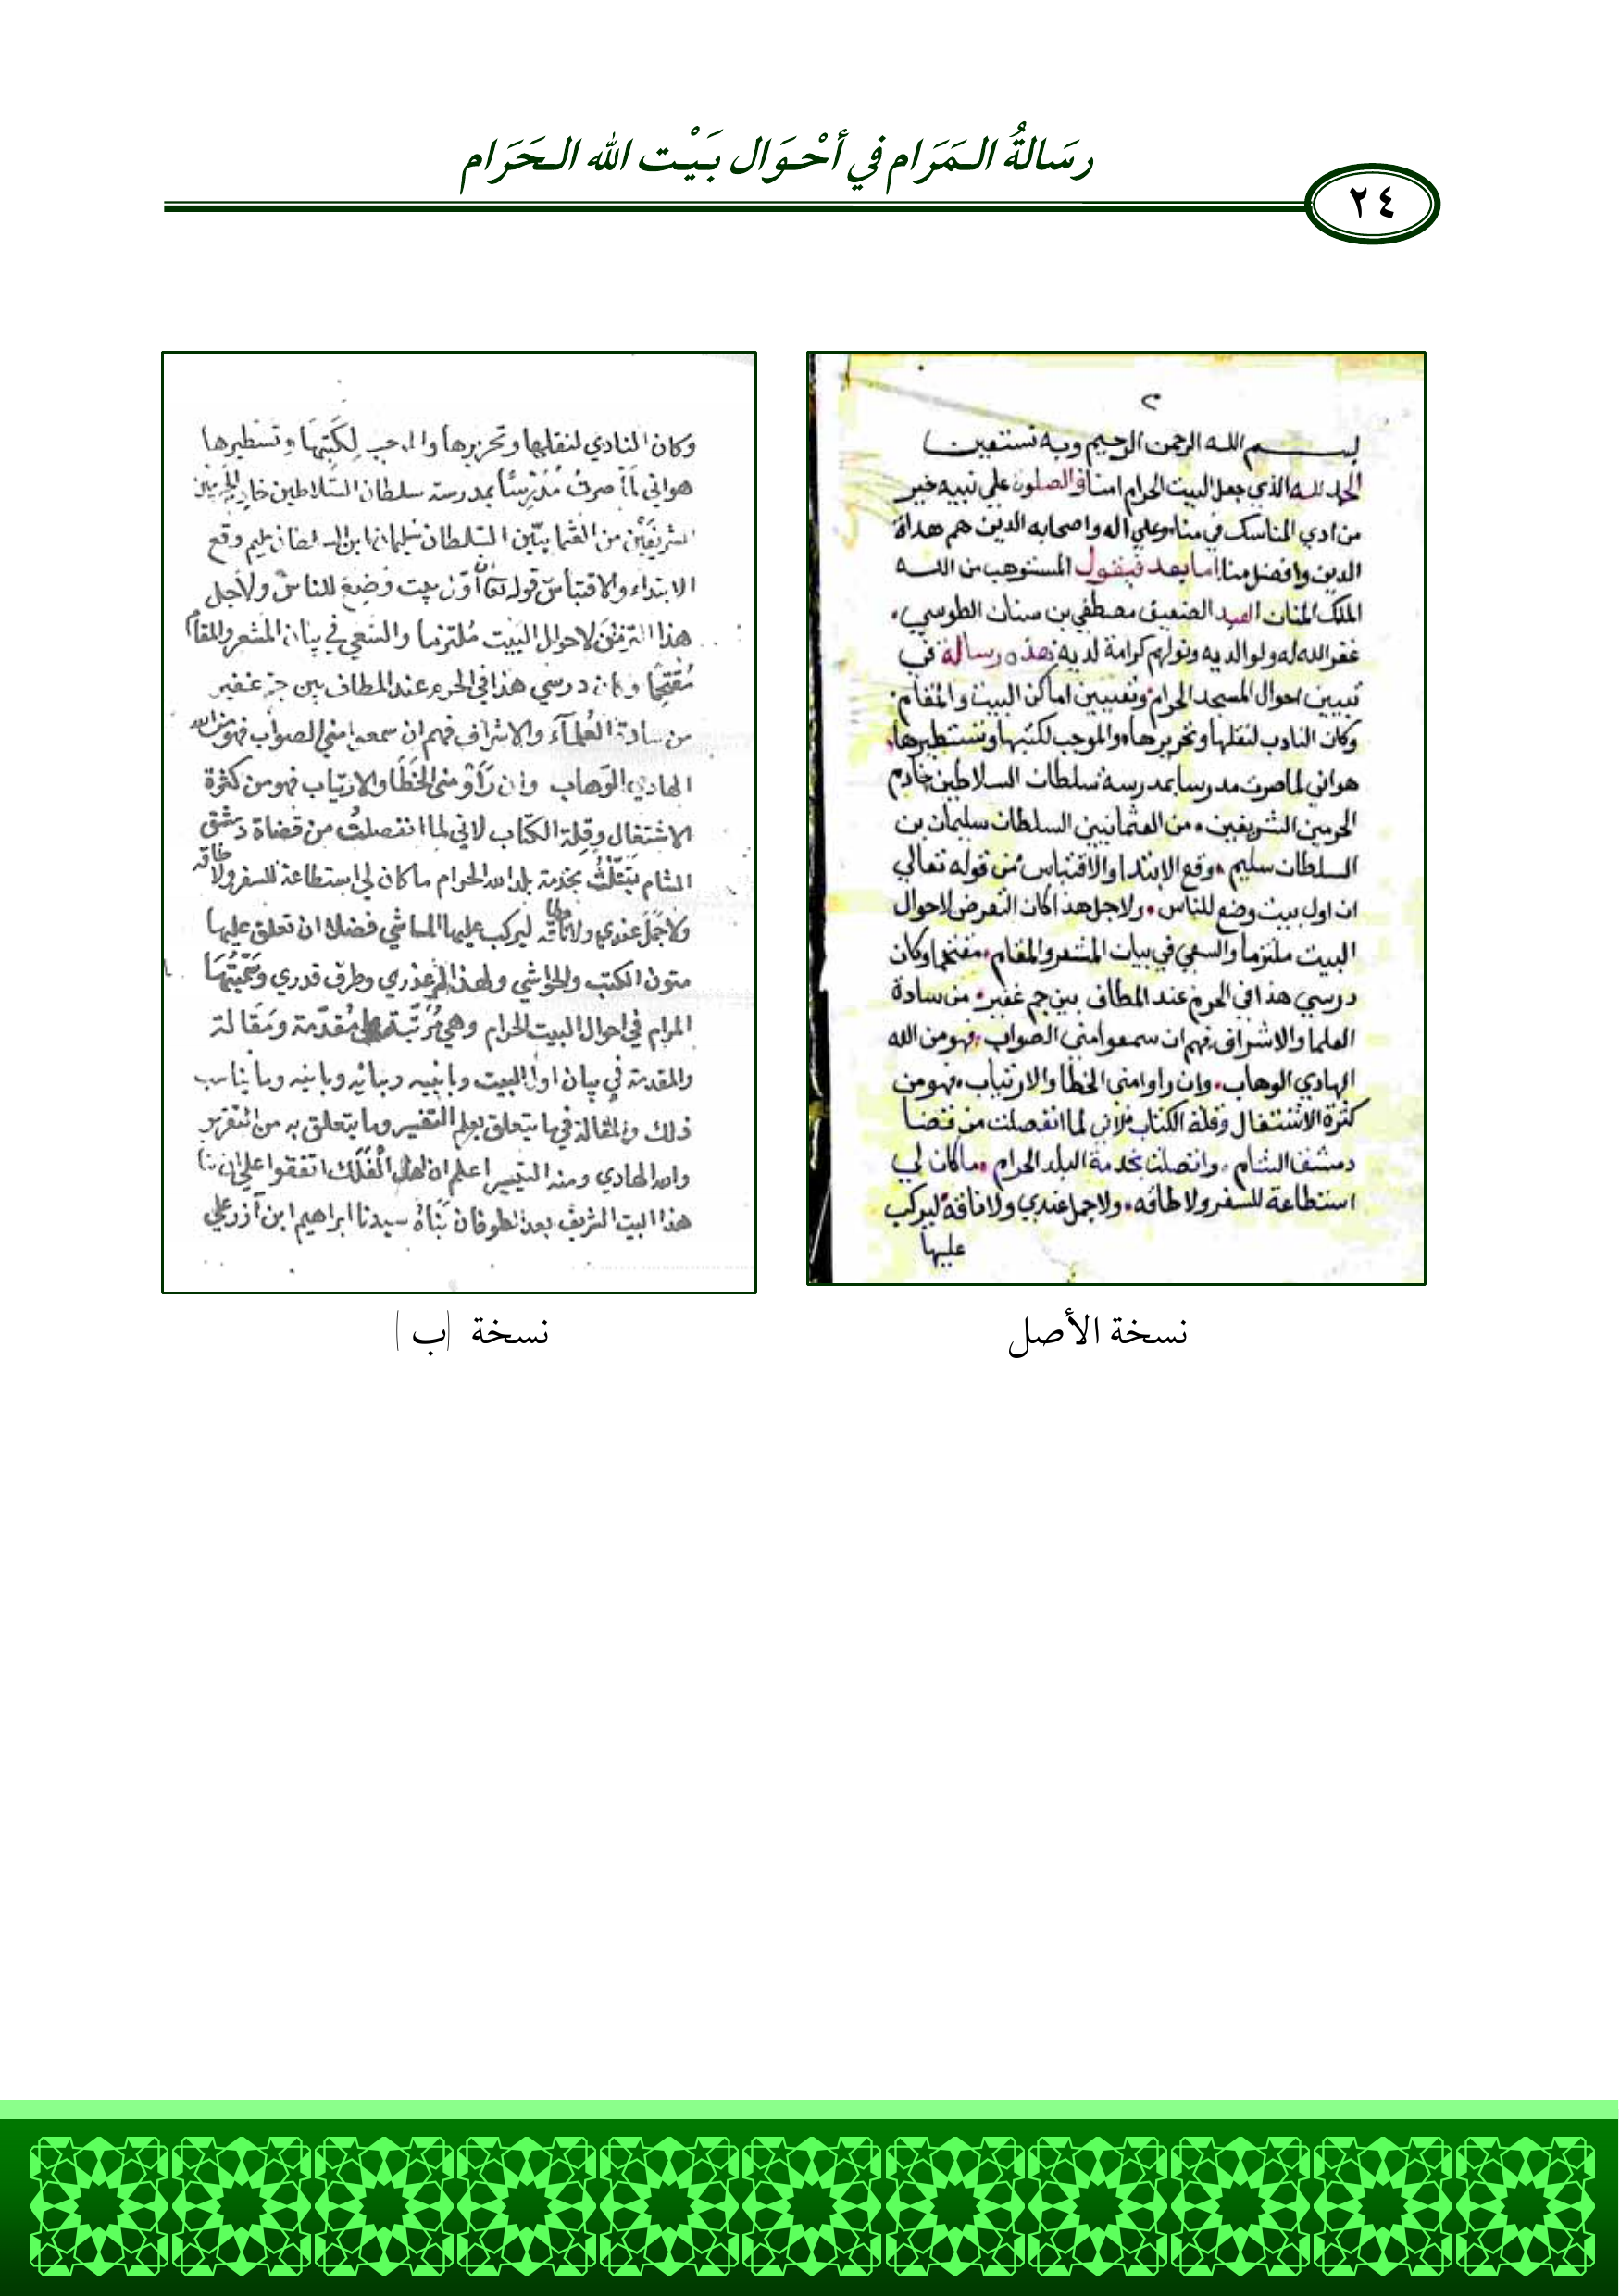 رسَالةُ الـمَرَام في أحْوَال بَيْت الله الـحَرَام
٢٤
بسم الله الرحمن الرحيم وبه نستعين
الحمد لله الذي جعل البيت الحرام امنا والصلوة على نبيه خير
من ادي المناسك في منا وعلي اله واصحابه الذين هم هداة
الدين وافضل منا اما بعد فيقول المستوهب من الله
الملك المنان العبد الضعيف مصطفي بن سنان الطوسي
غفر الله له ولوالديه ونولهم كرامة لديه هذه رسالة في
تبيين احوال المسجد الحرام وتعيين اماكن البيت والمقام
وكان النادب لنقلها وتحريرها والموجب لكتبها وتستطيرها
هو اني لما صرت مدرسا بمدرسة سلطان السلاطين خادم
الحرمين الشريفين من العثمانيين السلطان سليمان بن
السلطان سليم وقع الابتدا والاقتباس من قوله تعالي
ان اول بيت وضع للناس ولاجل هذا كان التعرض لاحوال
البيت ملتزما والسعي في بيان المشعر والمقام مفتخما وكان
درسي هذا في الحرم عند المطاف بين جم غفير من سادة
العلما والاشراف فهم ان سمعوا مني الصواب فهو من الله
الهادي الوهاب وان راوا مني الخطا والارتياب فهو من
كثرة الاشتغال وقلة الكتاب لاني لما انفصلت من قضا
دمشق الشام واتصلت بخدمة البلد الحرام ماكان لي
استطاعة للسفر ولا طاقه ولا جمل عندي ولا ناقة ليركب
عليها
نسخة الأصل
وكان النادي لنقلها وتحريرها والموجب لِكَتبِهَا وتسطيرها
هو اني لمّا صرتُ مُدَرّسًا بمدرسة سلطان السّلاطين خادم الحرمين
الشريفَيْن من العثمانيّين السّلطان سُليمان ابن السلطان سليم وقع
الابتداء والاقتباسُ قوله تعا ان أوّل بيت وضِعَ للناس ولاجل
هذا التعرّض لاحوال البَيت مُلتزما والسّعي في بيان المشعر والمقام
مُفتخمًا وكان درسي هذا في الحرم عند المطاف بين جم غفير
من سادة العُلمآء والاشراف فهم ان سمعوا مني الصواب فهو من الله
الهادي الوَهاب وان رَأَوْ مني الخَطَا والارتياب فهو من كثرة
الاشتغال وقِلة الكتاب لاني لما انفصلتُ من قضاة دمشق
الشام بخدمة بلد الله الحرام ماكان لي استطاعة للسفر ولا طاقه
ولا جَمَل عندي ولا ناقَه ليركب عليها الماشي فضلا ان تعلق عليها
متون الكتب والحواشي ولهذا عذري وطرق قدري وسَمّيتُهَا
المرام في احوال البيت الحرام وهي مُرَتّبة على مُقدّمة ومَقَالة
والمقدمة في بيان اول البيت وبانيه وبنائه وما يناسب
ذلك والمقالة في ما يتعلق بعلم التفسير وما يتعلق به من التقرير
والله الهادي ومنه التيسير اعلم ان اهل الفَلَك اتفقوا على ان
هذا البيت الشريف بعد الطوفان بَناهُ سيدنا ابراهيم ابن آزر علي
نسخة (ب)